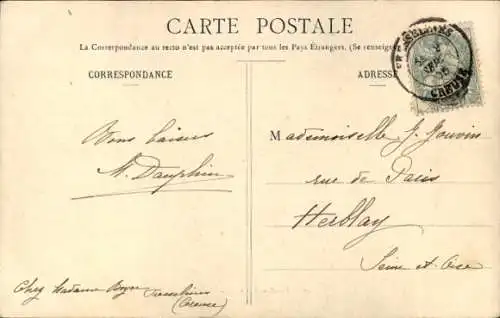 CARTE POSTALE
La Correspondance au recto n'est pas acceptée par tous les Pays Étrangers. (Se renseigner
CORRESPONDANCE
ADRESSE
FRESSELINES
CREUSE
Bons baisers
M. Dauphin
Mademoiselle G. Jouvin
rue de Paris
Herblay
Seine et Oise
Chez Madame Boyer Fresselines
(Creuse)